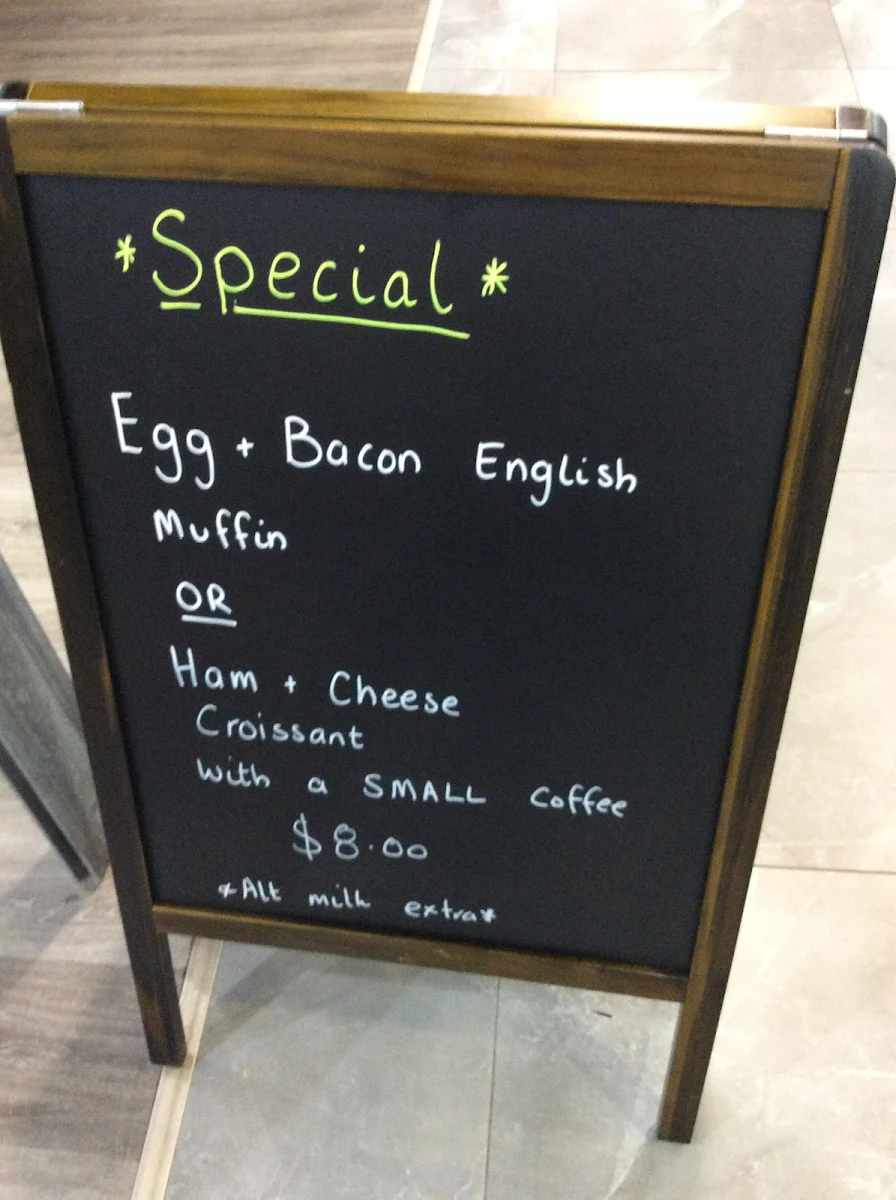 *Special*
Egg + Bacon English
Muffin
OR
Ham + Cheese
Croissant
with a SMALL Coffee
$8.00
*Alt milk extra*